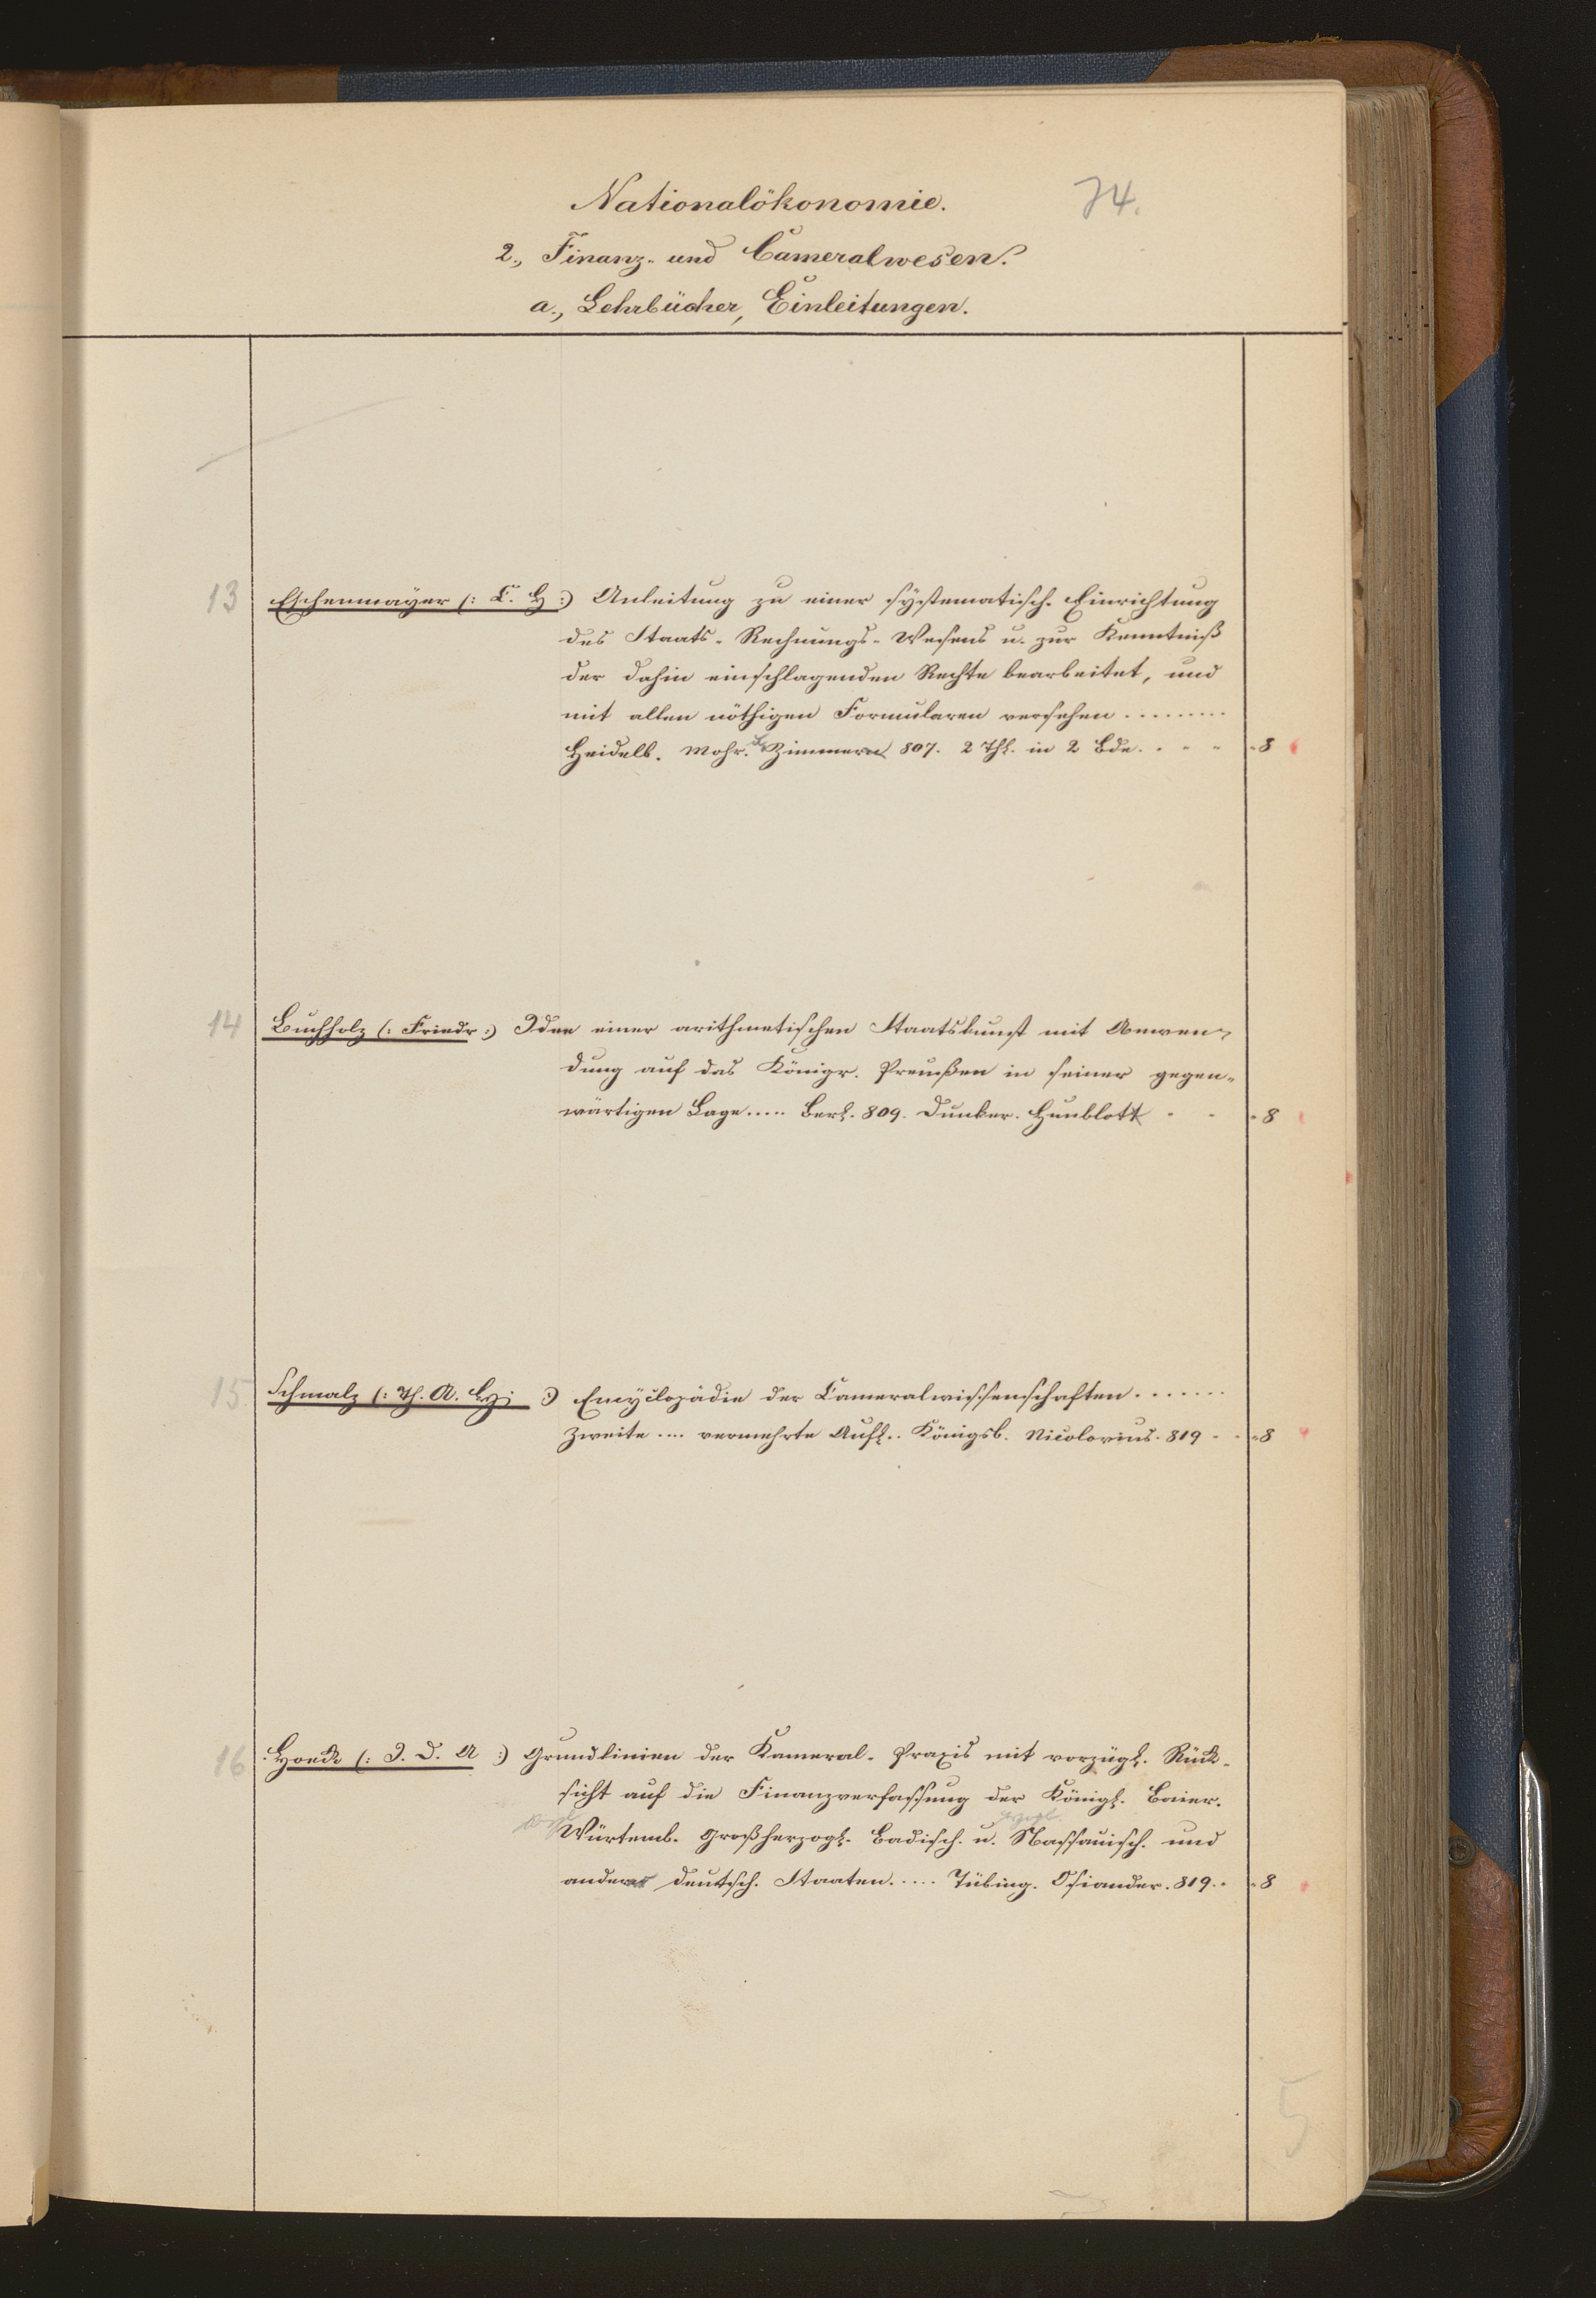 Nationalökonomie.
74.
2., Finanz- und Cameralwesen.
a., Lehrbücher, Einleitungen.
13 Eschenmayer (: C. H :) Anleitung zu einer systematisch. Einrichtung
des Staats-Rechnungs-Wesens u. zur Kenntniß
der dahin einschlagenden Rechte bearbeitet, und
mit allen nöthigen Formularen versehen .........
Heidelb. Mohr. & Zimmern 807. 2 Thl. in 2 Bde. . - - - 8
14 Buchholz (: Friedr :) Idee einer arithmetischen Staatskunst mit Anwen-
dung auf das Königr. Preußen in seiner gegen-
wärtigen Lage..... Berl. 809. Dunker. Humblott - - - 8
15 Schmalz (: Th. A. H. :) Encyclopädie der Cameralwissenschaften .......
Zweite .... vermehrte Aufl.. Königsb. Nicolovius. 819 - - - 8
16 Hoeck (: J. D. A :) Grundlinien der Kameral-Praxis mit vorzügl. Rück-
sicht auf die Finanzverfassung der Königl. Baier.
Würtemb. Großherzogl. Badisch. u. Nassauisch. und
herzogl.
anderer deutsch. Staaten..... Tübing. Osiander. 819. - - 8
5